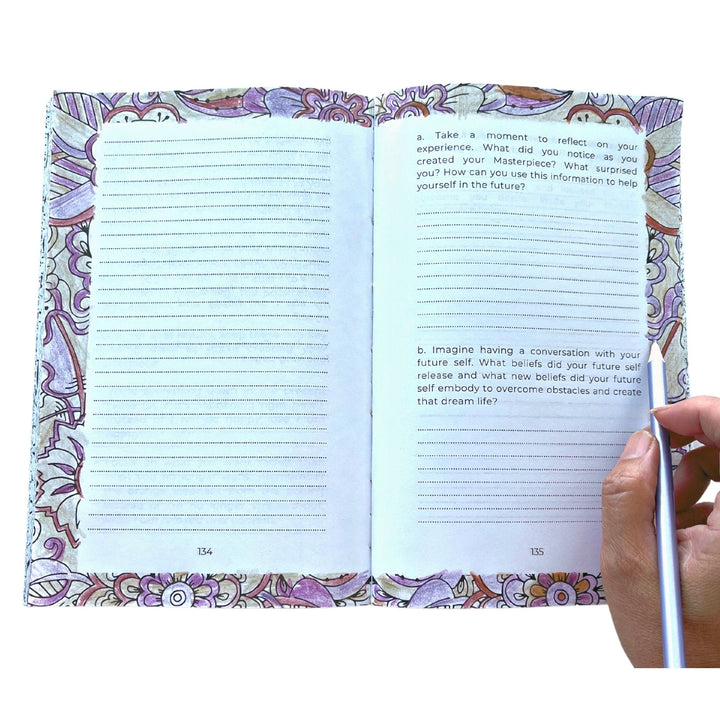 a. Take a moment to reflect on your
experience. What did you notice as you
created your Masterpiece? What surprised
you? How can you use this information to help
yourself in the future?
b. Imagine having a conversation with your
future self. What beliefs did your future self
release and what new beliefs did your future
self embody to overcome obstacles and create
that dream life?
134
135